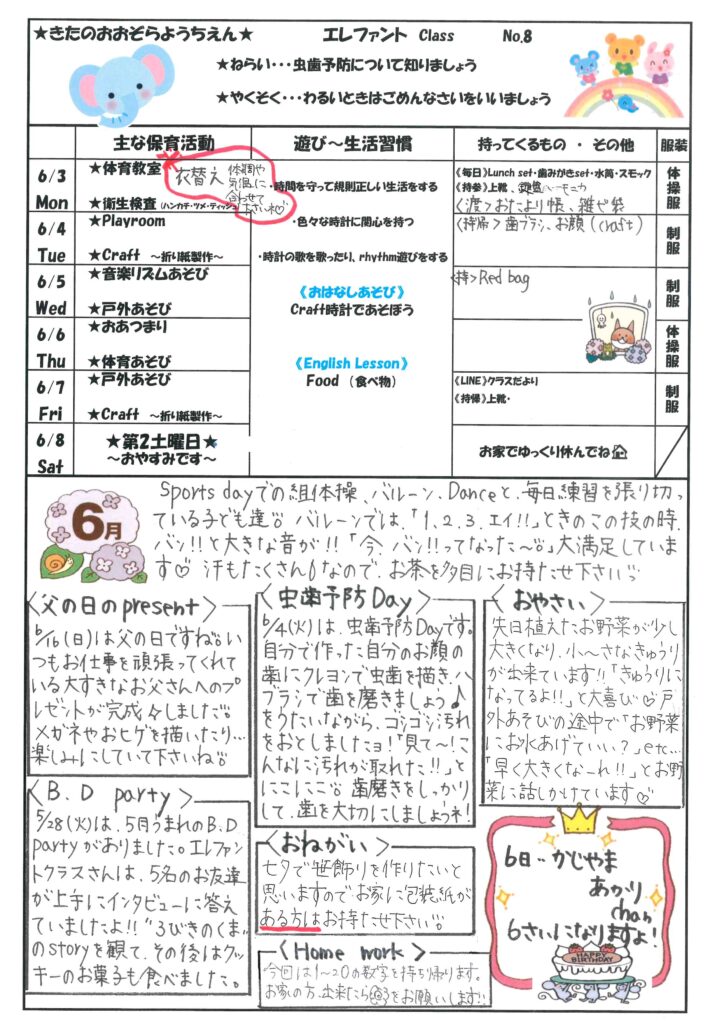 ★きたのおおぞらようちえん★　エレファント Class　No.8
★ねらい･･･虫歯予防について知りましょう
★やくそく･･･わるいときはごめんなさいをいいましょう
主な保育活動　遊び～生活習慣　持ってくるもの ・ その他　服装
6/3 Mon
★体育教室
衣替え 体調や気温に合わせて下さいね♡
★衛生検査（ハンカチ・ツメ・ティッシュ）
・時間を守って規則正しい生活をする
《毎日》Lunch set・歯みがきset・水筒・スモック
《持参》上靴、鍵盤ハーモニカ
〈渡〉おたより帳、雑セ袋
体操服
6/4 Tue
★Playroom
★Craft ～折り紙製作～
・色々な時計に関心を持つ
・時計の歌を歌ったり、rhythm遊びをする
〈持帰〉歯ブラシ、お顔（craft）
制服
6/5 Wed
★音楽リズムあそび
★戸外あそび
《おはなしあそび》
Craft時計であそぼう
〈持〉Red bag
制服
6/6 Thu
★おあつまり
★体育あそび
《English Lesson》
Food （食べ物）
体操服
6/7 Fri
★戸外あそび
★Craft ～折り紙製作～
《LINE》クラスだより
《持帰》上靴・
制服
6/8 Sat
★第2土曜日★
～おやすみです～
お家でゆっくり休んでね
6月
Sports dayでの組体操、バルーン、Danceと、毎日練習を張り切っ
ている子ども達 バルーンでは、「1、2、3、エイ!!」ときのこの技の時、
バン!!と大きな音が!! 「今、バン!!ってなった～」大満足していま
す♡ 汗もたくさんなので、お茶を多目にお持たせ下さい
〈父の日のpresent〉
6/16(日)は父の日ですね。い
つもお仕事を頑張ってくれて
いる大すきなお父さんへのプ
レゼントが完成しました
メガネやおヒゲを描いたり…
楽しみにしていて下さいね
〈B.D party〉
5/28(火)は、5月うまれのB.D
partyがありました。エレファン
トクラスさんは、5名のお友達
が上手にインタビューに答え
ていましたよ!! "3びきのくま"
のstoryを観て、その後はクッ
キーのお菓子も食べました。
〈虫歯予防Day〉
6/4(火)は、虫歯予防Dayです。
自分で作った自分のお顔の
歯にクレヨンで虫歯を描き、ハ
ブラシで歯を磨きましょう♪
をうたいながら、ゴシゴシ汚れ
をおとしましたョ!「見て～!こ
んなに汚れが取れた!!」と
にこにこ 歯磨きをしっかり
して、歯を大切にしましょうネ!
〈おねがい〉
七夕で笹飾りを作りたいと
思いますのでお家に包装紙が
ある方はお持たせ下さい
〈Home work〉
今回は1～20の数字を持ち帰ります。
お家の方、出来たらをお願いします!!
〈おやさい〉
先日植えたお野菜が少し
大きくなり、小～さなきゅうり
が出来ています!!「きゅうりに
なってるよ!!」と大喜び♡戸
外あそびの途中で「お野菜
にお水あげていい?」etc…
「早く大きくな～れ!!」とお野
菜に話しかけています♡
6日‥かじやま
あかり
chan
6さいになりますよ!
HAPPY BIRTHDAY